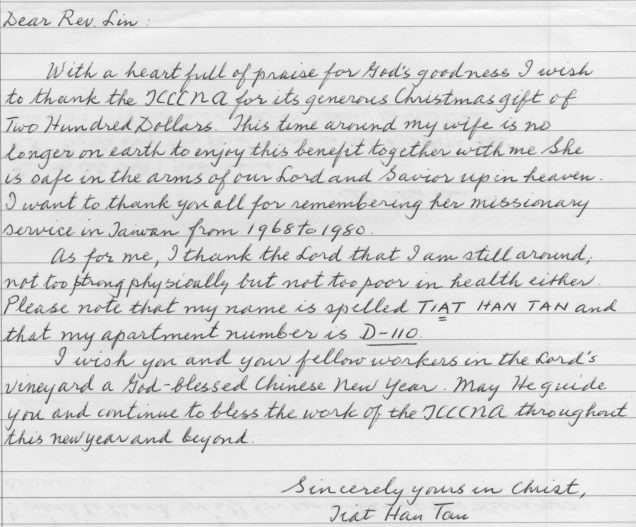 Dear Rev. Lin:
With a heart full of praise for God's goodness I wish
to thank the TCCCNA for its generous Christmas gift of
Two Hundred Dollars. This time around my wife is no
longer on earth to enjoy this benefit together with me She
is safe in the arms of our Lord and Savior up in heaven.
I want to thank you all for remembering her missionary
service in Taiwan from 1968 to 1980.
As for me, I thank the Lord that I am still around,
not too strong physically but not too poor in health either.
Please note that my name is spelled TIAT HAN TAN and
that my apartment number is D-110.
I wish you and your fellow workers in the Lord's
vineyard a God-blessed Chinese New Year. May He guide
you and continue to bless the work of the TCCCNA throughout
this new year and beyond.
Sincerely yours in Christ,
Tiat Han Tan